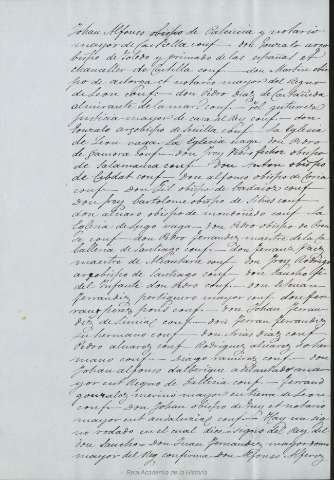 Johan Alfonso obispo de Palencia y notario
mayor de Castiella conf — don Gonzalo arzo
bispo de Toledo y primado de las españas et
chanceller de Castilla conf — don Martin obis
po de astorga et notario mayor del Regno
de Leon conf — don Pedro Diaz de Castañeda
almirante de la mar conf — Roi gutierrez
Justicia mayor de casa del Rey conf — don
Gonzalo arzobispo de Sevilla conf — la Eglesia
de Leon vaga — la Eglesia vaga — don Pedro
de Zamora conf — don fray Pedro obispo
de Salamanca conf — don obispo
de Cibdat conf — don alfonso obispo de Coria
conf — don Gil obispo de badaioz conf
don fray bartolome obispo de Silves conf
don alvaro obispo de mondoñedo conf — la
Eglesia de Lugo vaga — don Pedro obispo de
conf — don Pedro ferrandez maestre de la ca
balleria de santiago conf — don ferrant Paez
maestre de Alcantara conf — don fray Rodrigo
arzobispo de Santiago conf — don Sancho fi
del Infante don Pedro conf — don Estevan
ferrandez pertiguero mayor conf don fer
rant perez ponz conf — don Johan ferran
dez de Limia conf — don ferran ferrandez
su hermano conf — don Arias Diaz conf
Pedro alvarez conf — Rodrigo alvarez so her
mano conf — Diago Ramirez conf — don
Johan alfonso dalborique adelantado am
yor en el Regno de Gallicia conf — ferrand
gonzalez merino mayor en tierra de Leon
conf — don Johan obispo de Tuy et notario
mayor en el andalucia conf — Hay un sig
no rodado en el cual dice — Signo del Rey
don Sancho — don Juan Fernandez mayordomo
mayor del Rey confirma — don Alfonso Alferez
Real Academia de la Historia